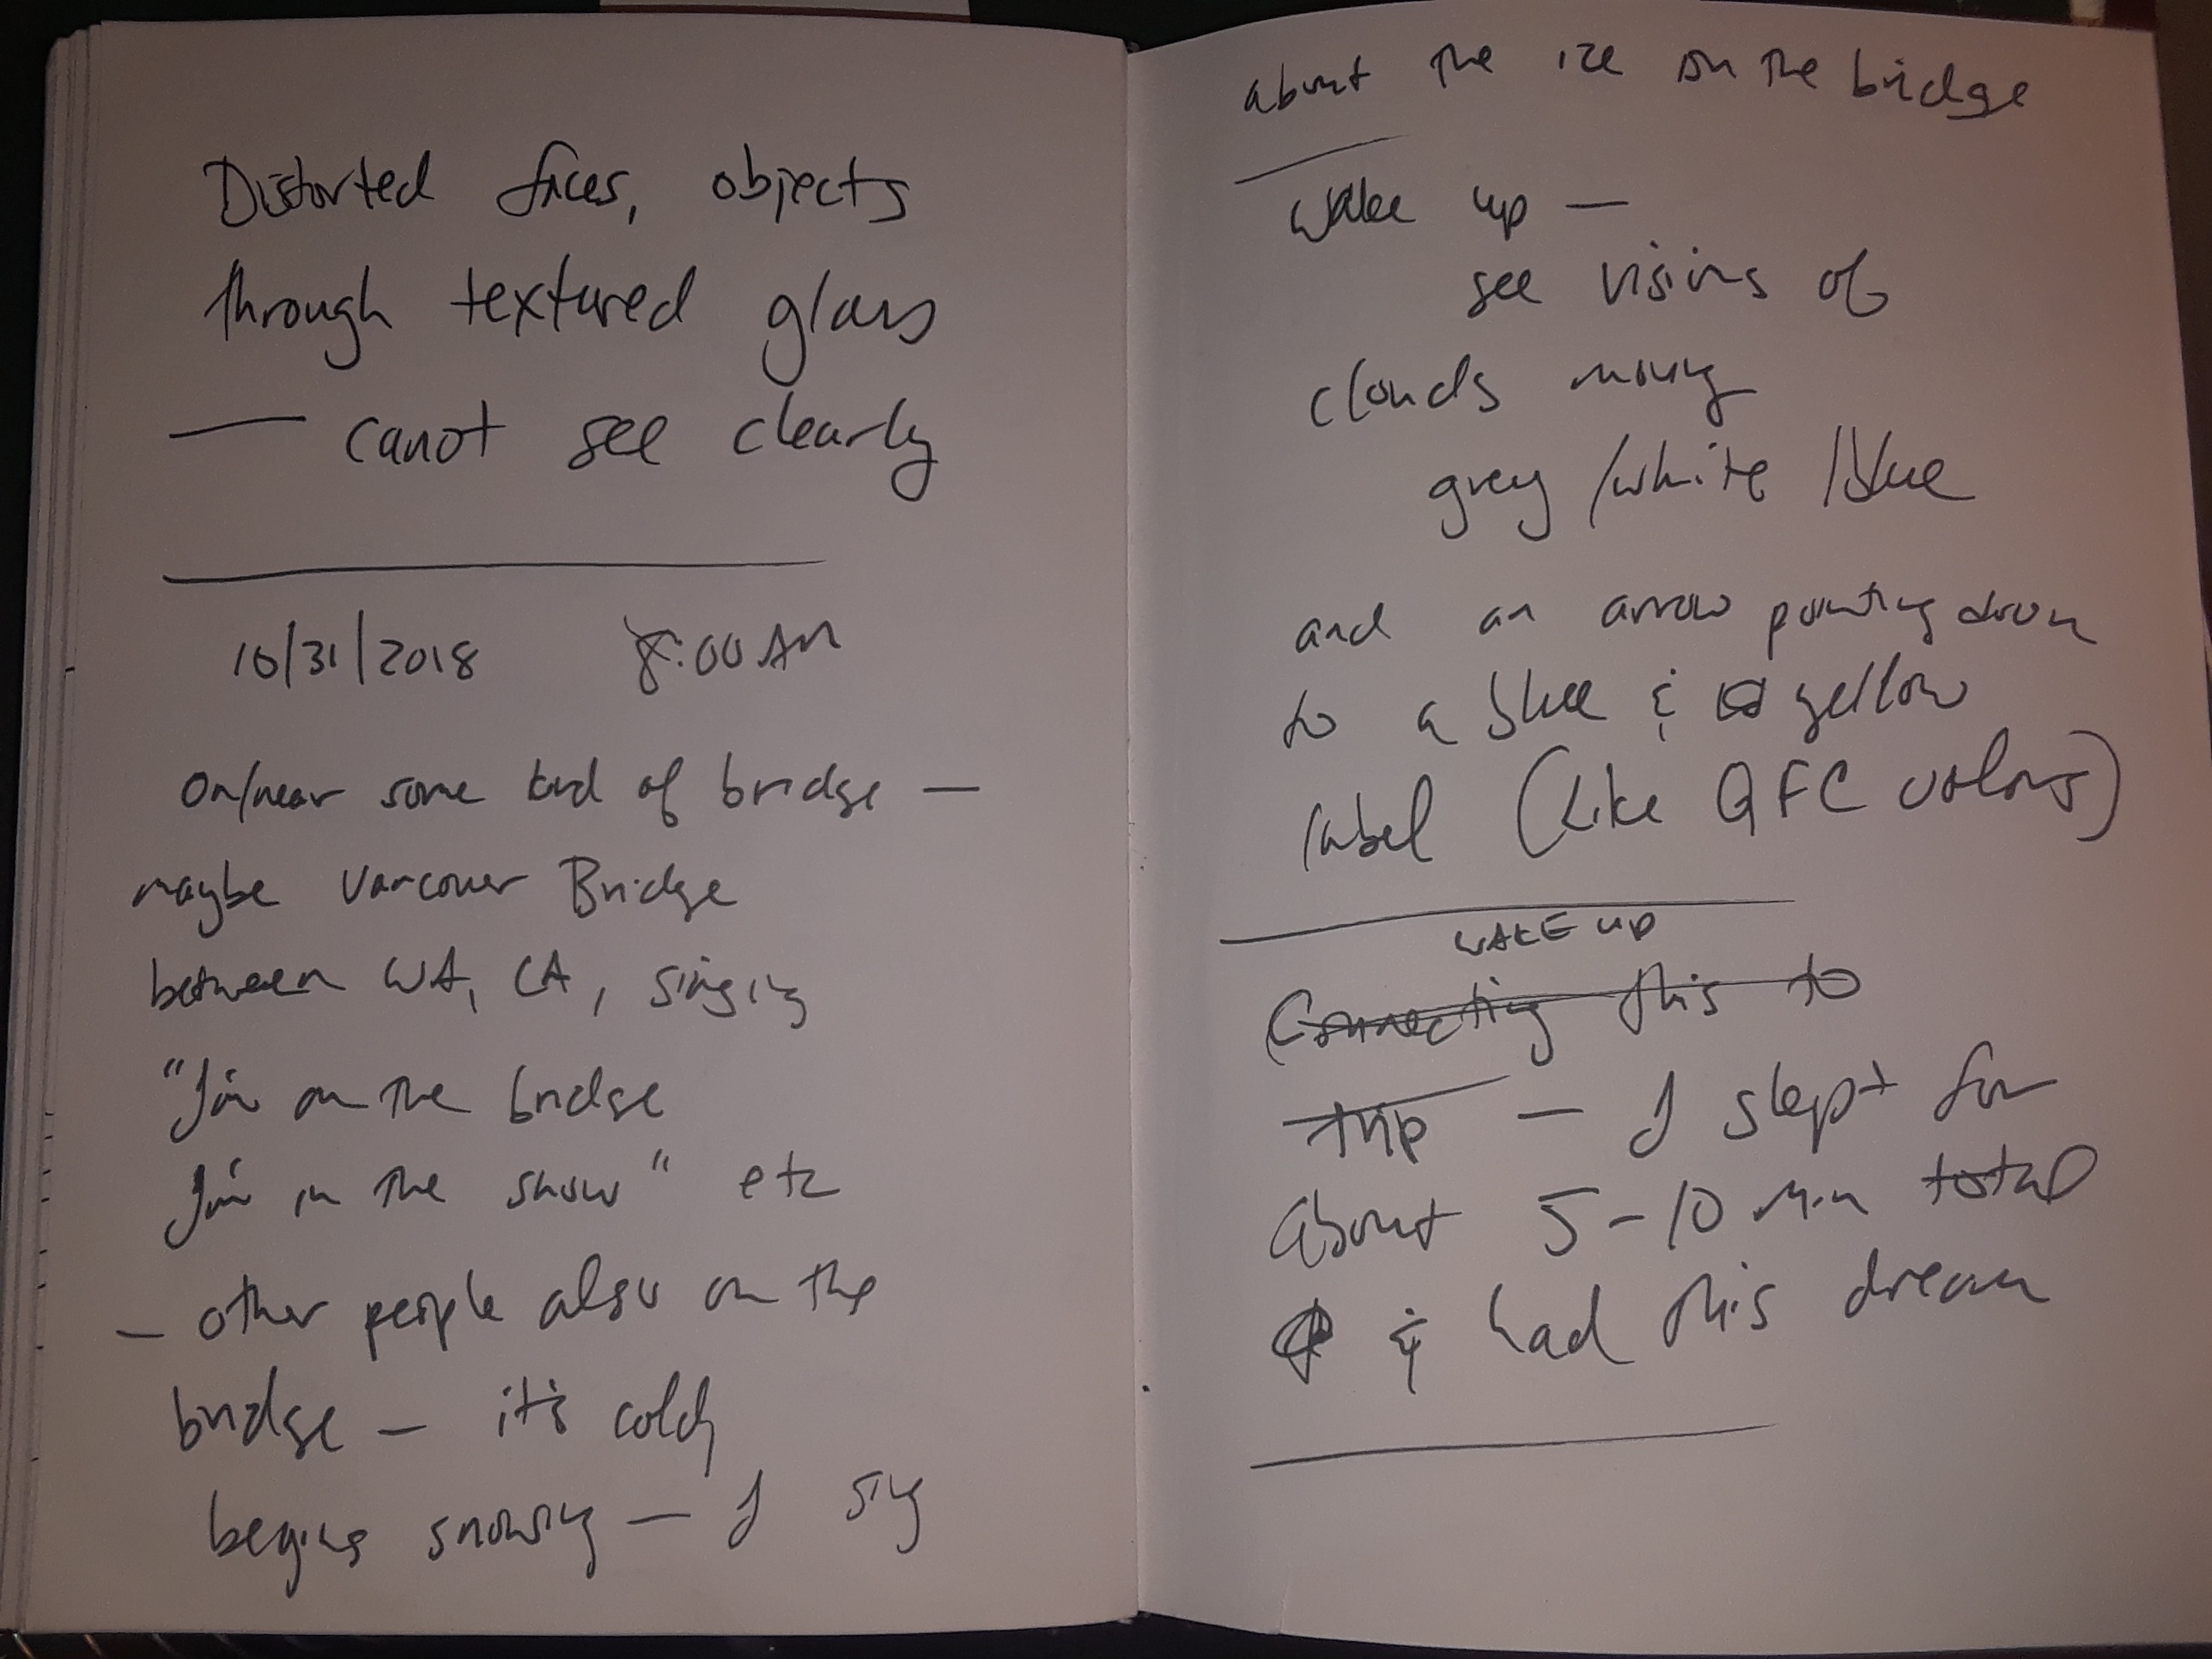 Distorted faces, objects
through textured glass
— canot see clearly
10/31/2018 8:00 AM
on/near some kind of bridge —
maybe Vancouver Bridge
between WA, CA, singing
"Join on the bridge
Join in the show" etc
— other people also on the
bridge — it's cold,
begins snowing — I sing
about the ice on the bridge
wake up —
see visions of
clouds moving
grey /white /blue
and an arrow pointing down
to a blue & yellow
label (Like QFC colors)
WAKE UP
Connecting this to
trip — I slept for
about 5-10 min total
& had this dream